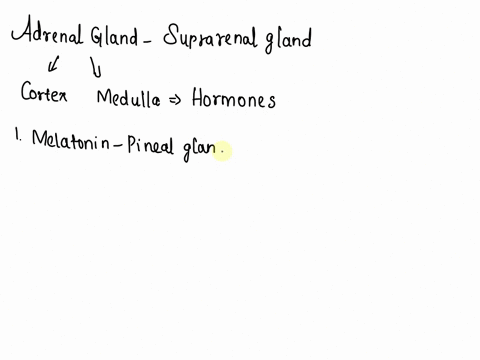 Adrenal Gland - Suprarenal gland
Cortex Medulla ⇒ Hormones
1. Melatonin - Pineal glan